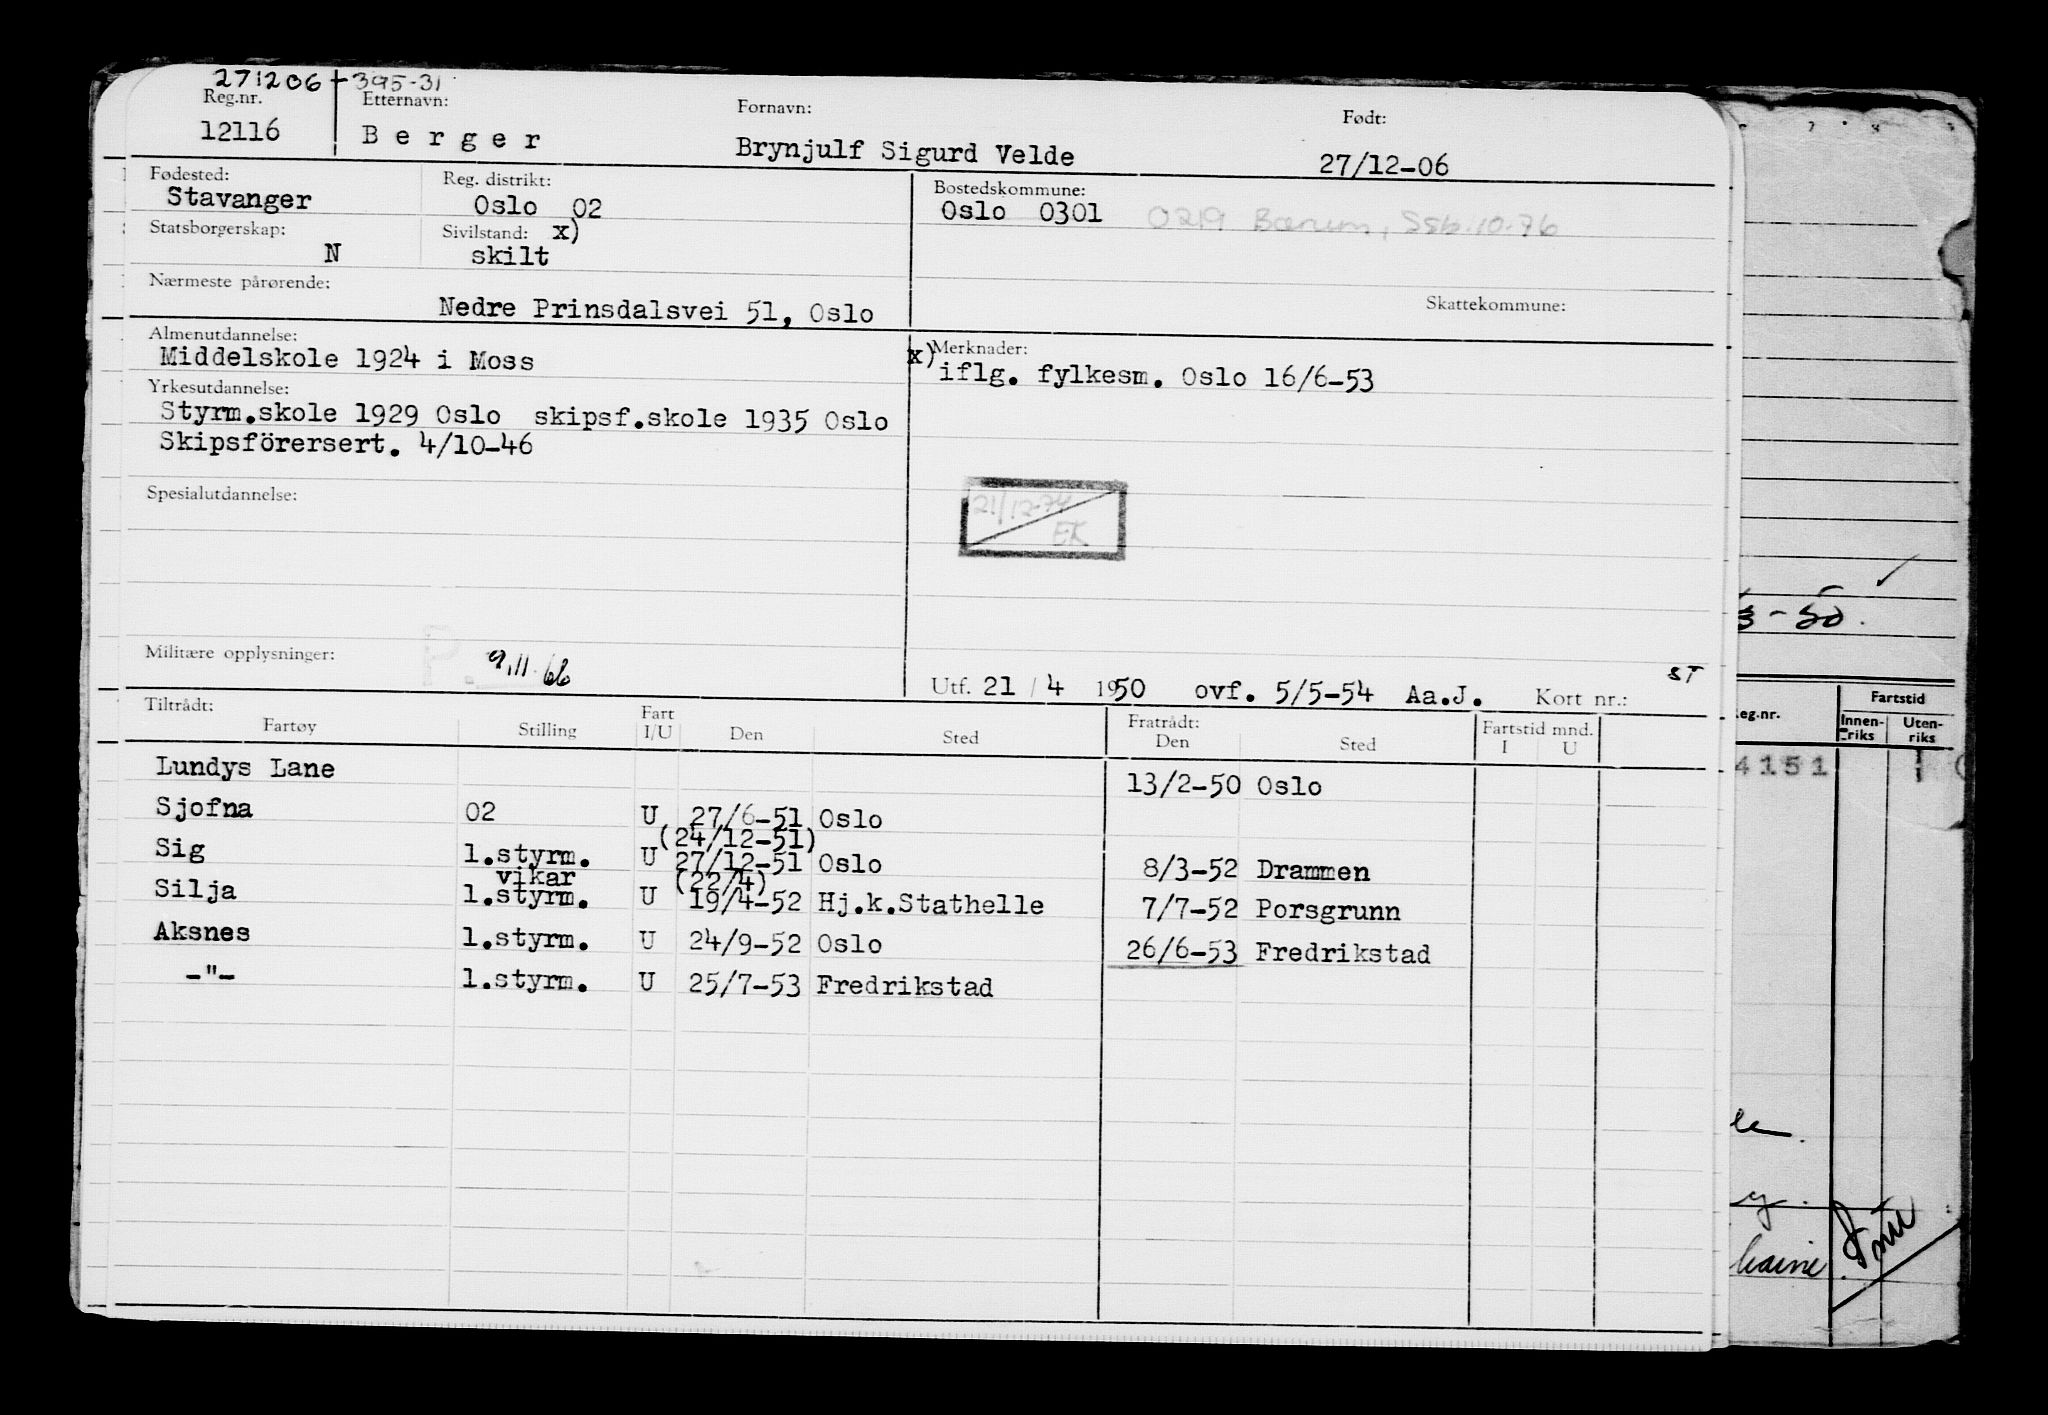 271206 + 395-31
Reg.nr. Etternavn: Fornavn: Født:
12116 Berger Brynjulf Sigurd Velde 27/12-06
Fødested: Reg. distrikt: Bostedskommune:
Stavanger Oslo 02 Oslo 0301 0219 Bærum, Ssb.10-76
Statsborgerskap: Sivilstand: x)
N skilt
Nærmeste pårørende: Skattekommune:
Nedre Prinsdalsvei 51, Oslo
Almenutdannelse: x) Merknader:
Middelskole 1924 i Moss iflg. fylkesm. Oslo 16/6-53
Yrkesutdannelse:
Styrm.skole 1929 Oslo skipsf.skole 1935 Oslo
Skipsförersert. 4/10-46
Spesialutdannelse:
21/12-74
EK
Militære opplysninger: P. 9.11.66
Utf. 21 / 4 1950 ovf. 5/5-54 Aa.J. Kort nr.: ST
Tiltrådt: Fratrådt: Fartstid mnd.
Fartøy Stilling Fart I/U Den Sted Den Sted I U
Lundys Lane 13/2-50 Oslo
Sjofna 02 U 27/6-51 Oslo
(24/12-51)
Sig 1.styrm. U 27/12-51 Oslo 8/3-52 Drammen
vikar (22/4)
Silja 1.styrm. U 19/4-52 Hj.k.Stathelle 7/7-52 Porsgrunn
Aksnes 1.styrm. U 24/9-52 Oslo 26/6-53 Fredrikstad
-"- 1.styrm. U 25/7-53 Fredrikstad
3-50.
eg.nr. Fartstid
Innenriks Utenriks
4151